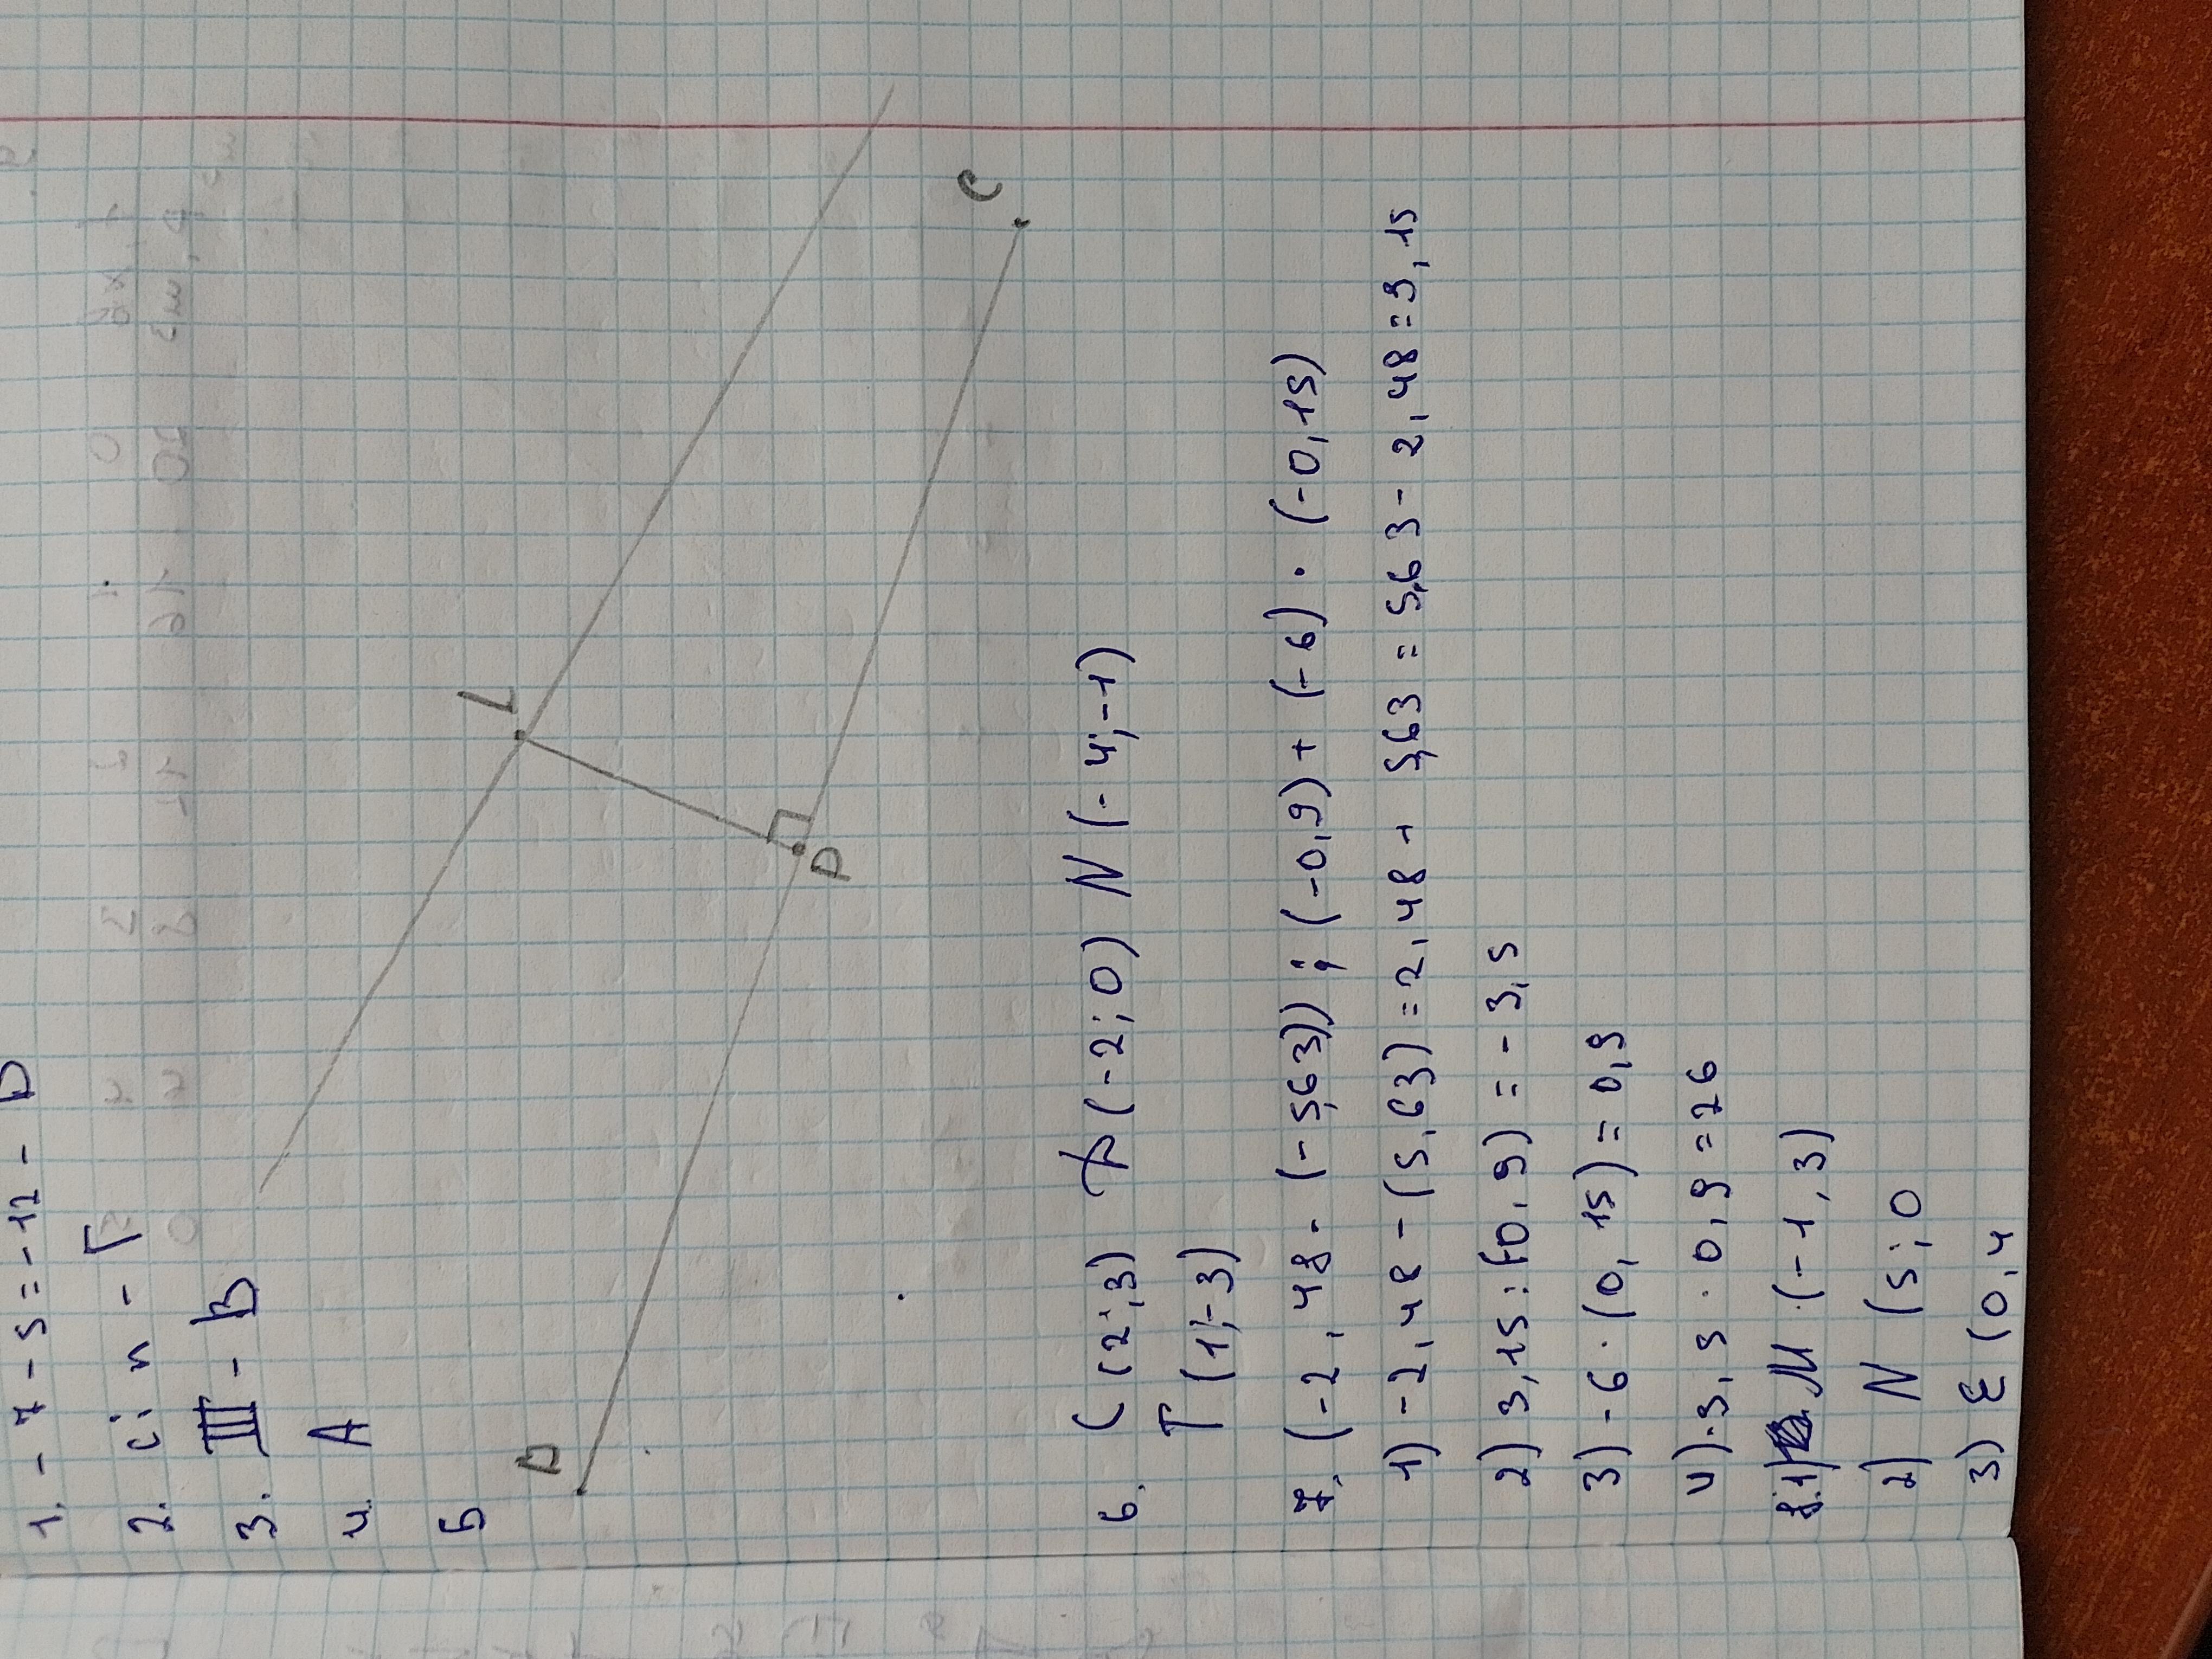 1. - 7 - 5 = - 12 - D
2. c i n - Г
3. III - B
4. A
5
D
L
P
C
6. C (2; 3) F (-2; 0) N (-4; -1)
T (1; -3)
7. (-2,48 - (-5,63)) : (-0,9) + (-6) · (-0,15)
1) -2,48 - (5,63) = 2,48 + 5,63 = 5,63 - 2,48 = 3,15
2) 3,15 : (-0,9) = - 3,5
3) - 6 · (0,15) = 0,9
4) -3,5 · 0,9 = 26
8. 1) M (-1, 3)
2) N (5; 0
3) E (0, 4